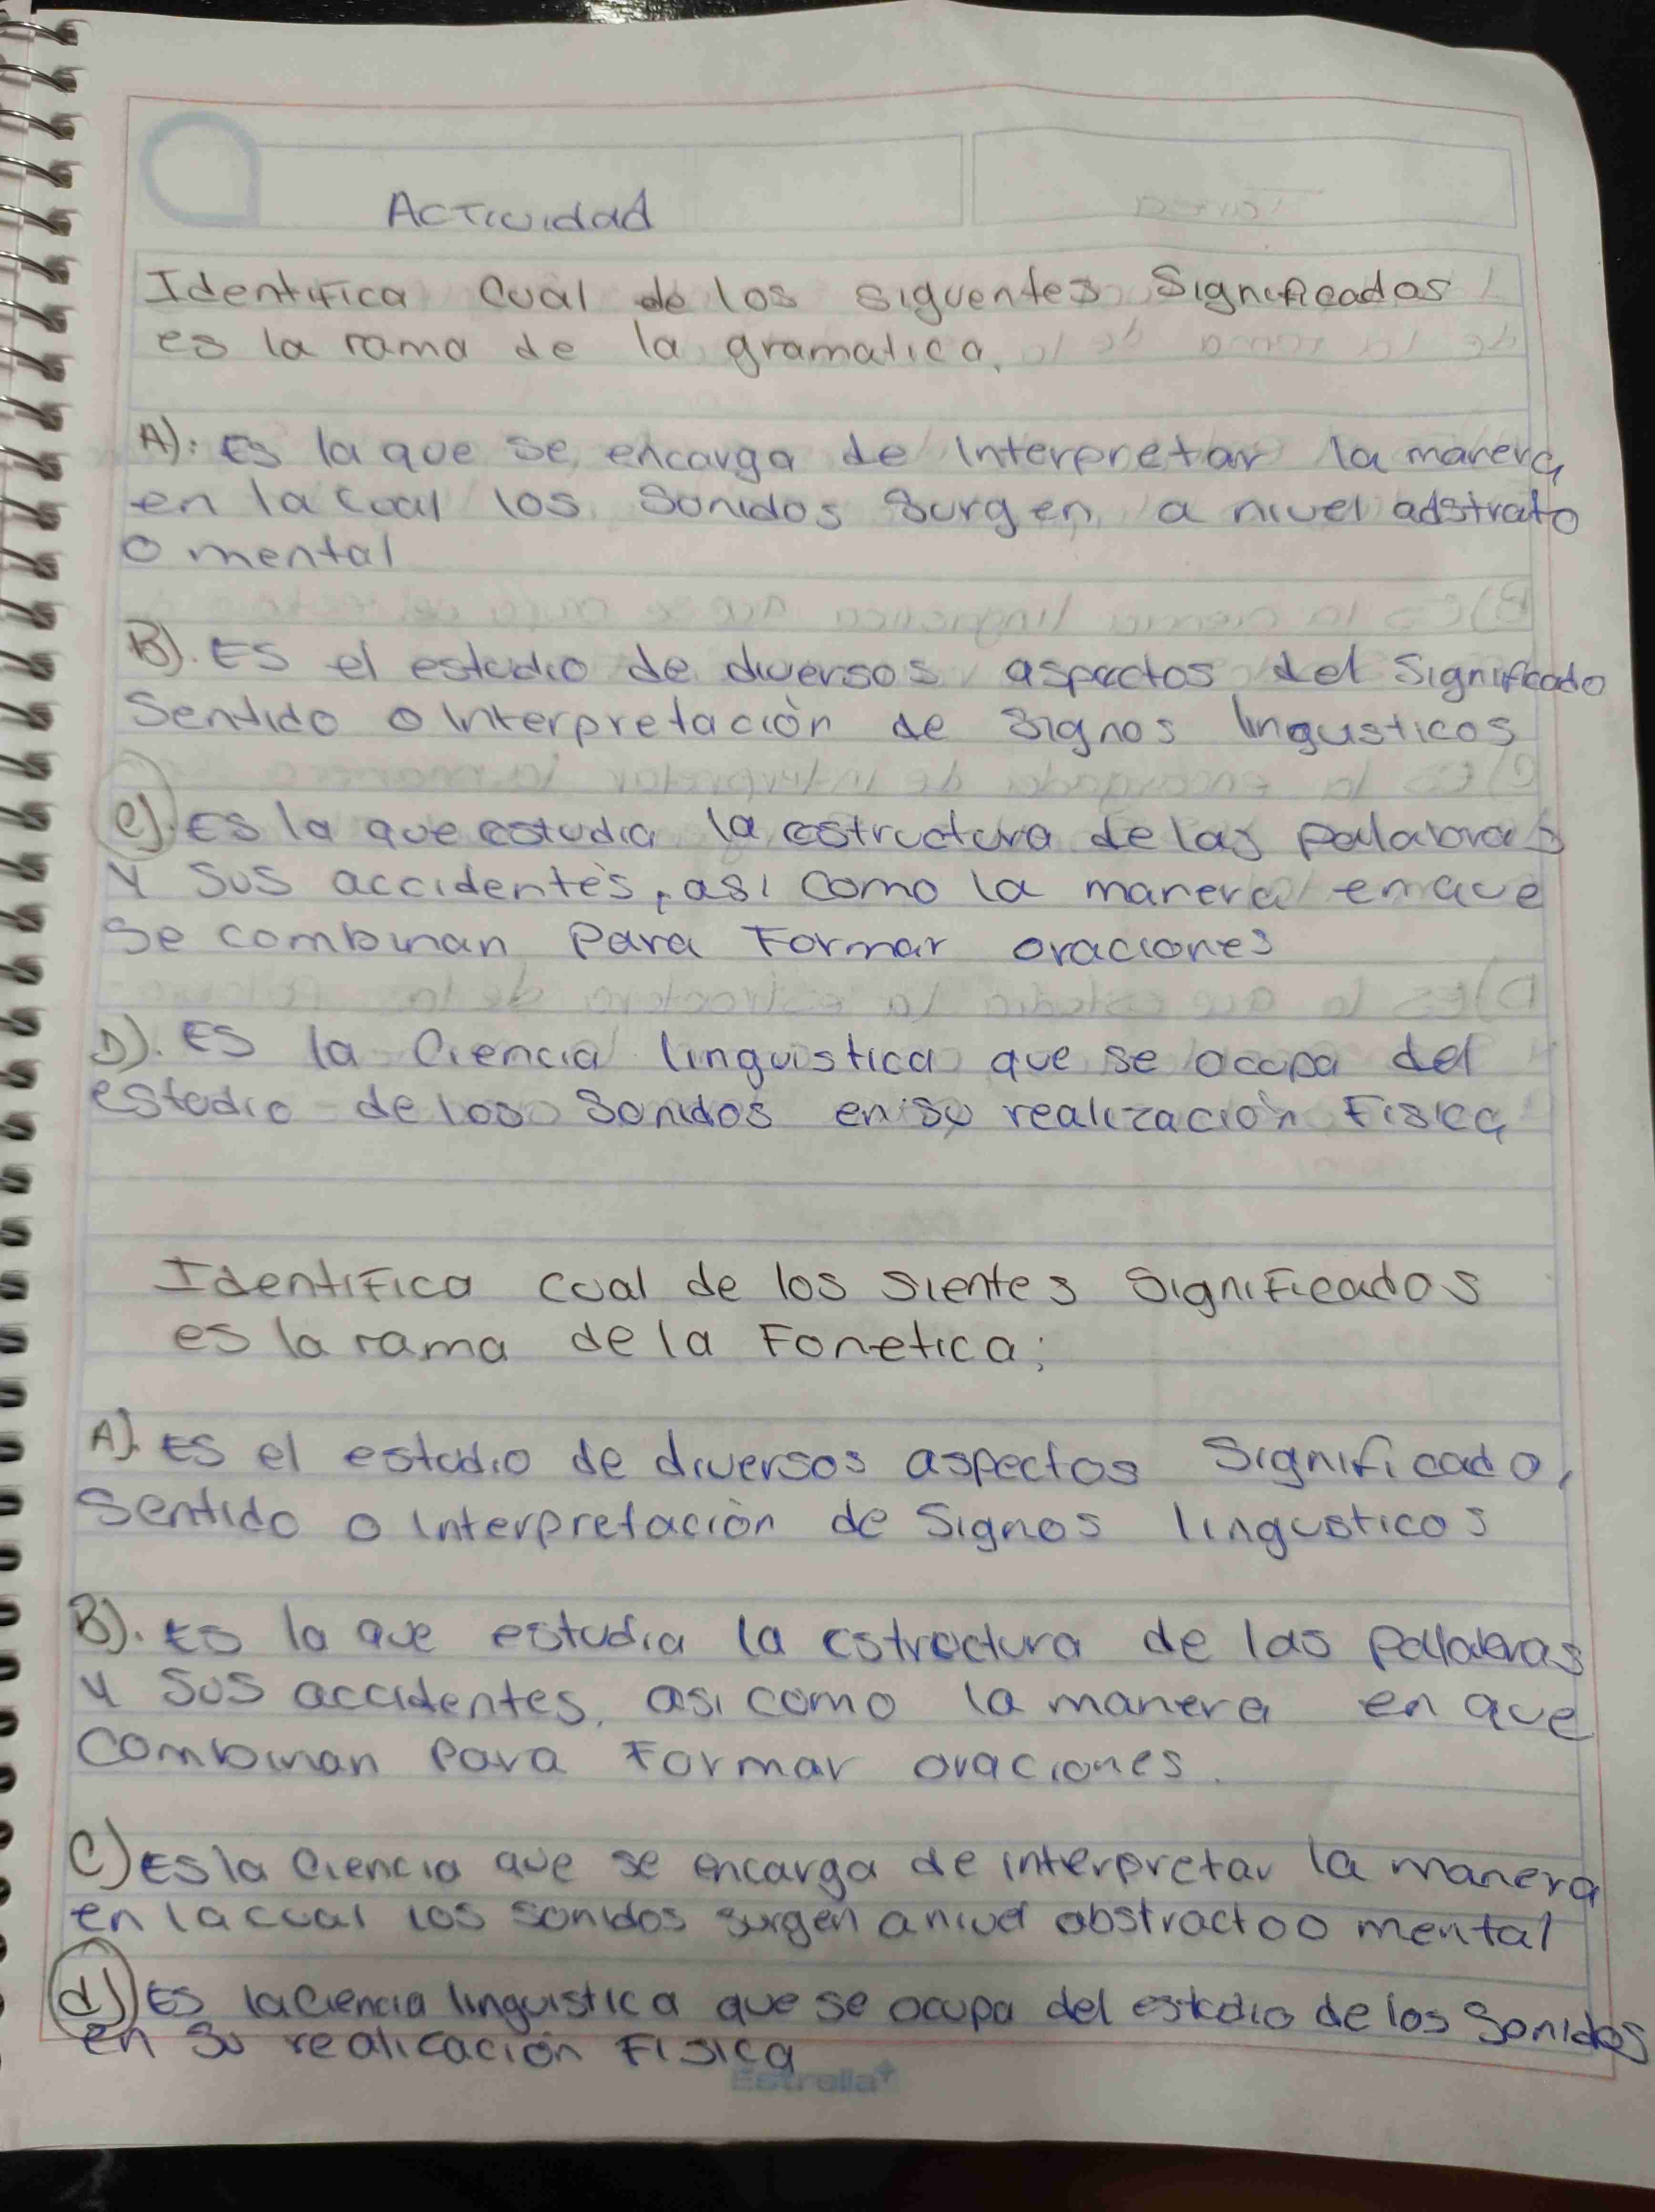 Actividad
Identifica cual de los siguentes significados
es la rama de la gramatica.
A). Es la que se encarga de interpretar la manera
en la cual los sonidos surgen a nivel adstrato
o mental
B). Es el estudio de diversos aspectos del significado
sentido o interpretación de signos lingusticos
C). Es la que estudia la estructura de las palabras
y sus accidentes, asi como la manera en que
se combinan para formar oraciones
D). Es la ciencia linguistica que se ocupa del
estudio de los sonidos en su realización fisica
Identifica cual de los sientes significados
es la rama de la fonetica:
A). Es el estudio de diversos aspectos significado,
sentido o interpretación de signos lingusticos
B). Es la que estudia la estructura de las palabras
y sus accidentes, asi como la manera en que
combinan para formar oraciones.
C) Es la ciencia que se encarga de interpretar la manera
en la cual los sonidos surgen a nivel abstracto o mental
d) Es la ciencia linguistica que se ocupa del estudio de los sonidos
en su realicación fisica
Estrella